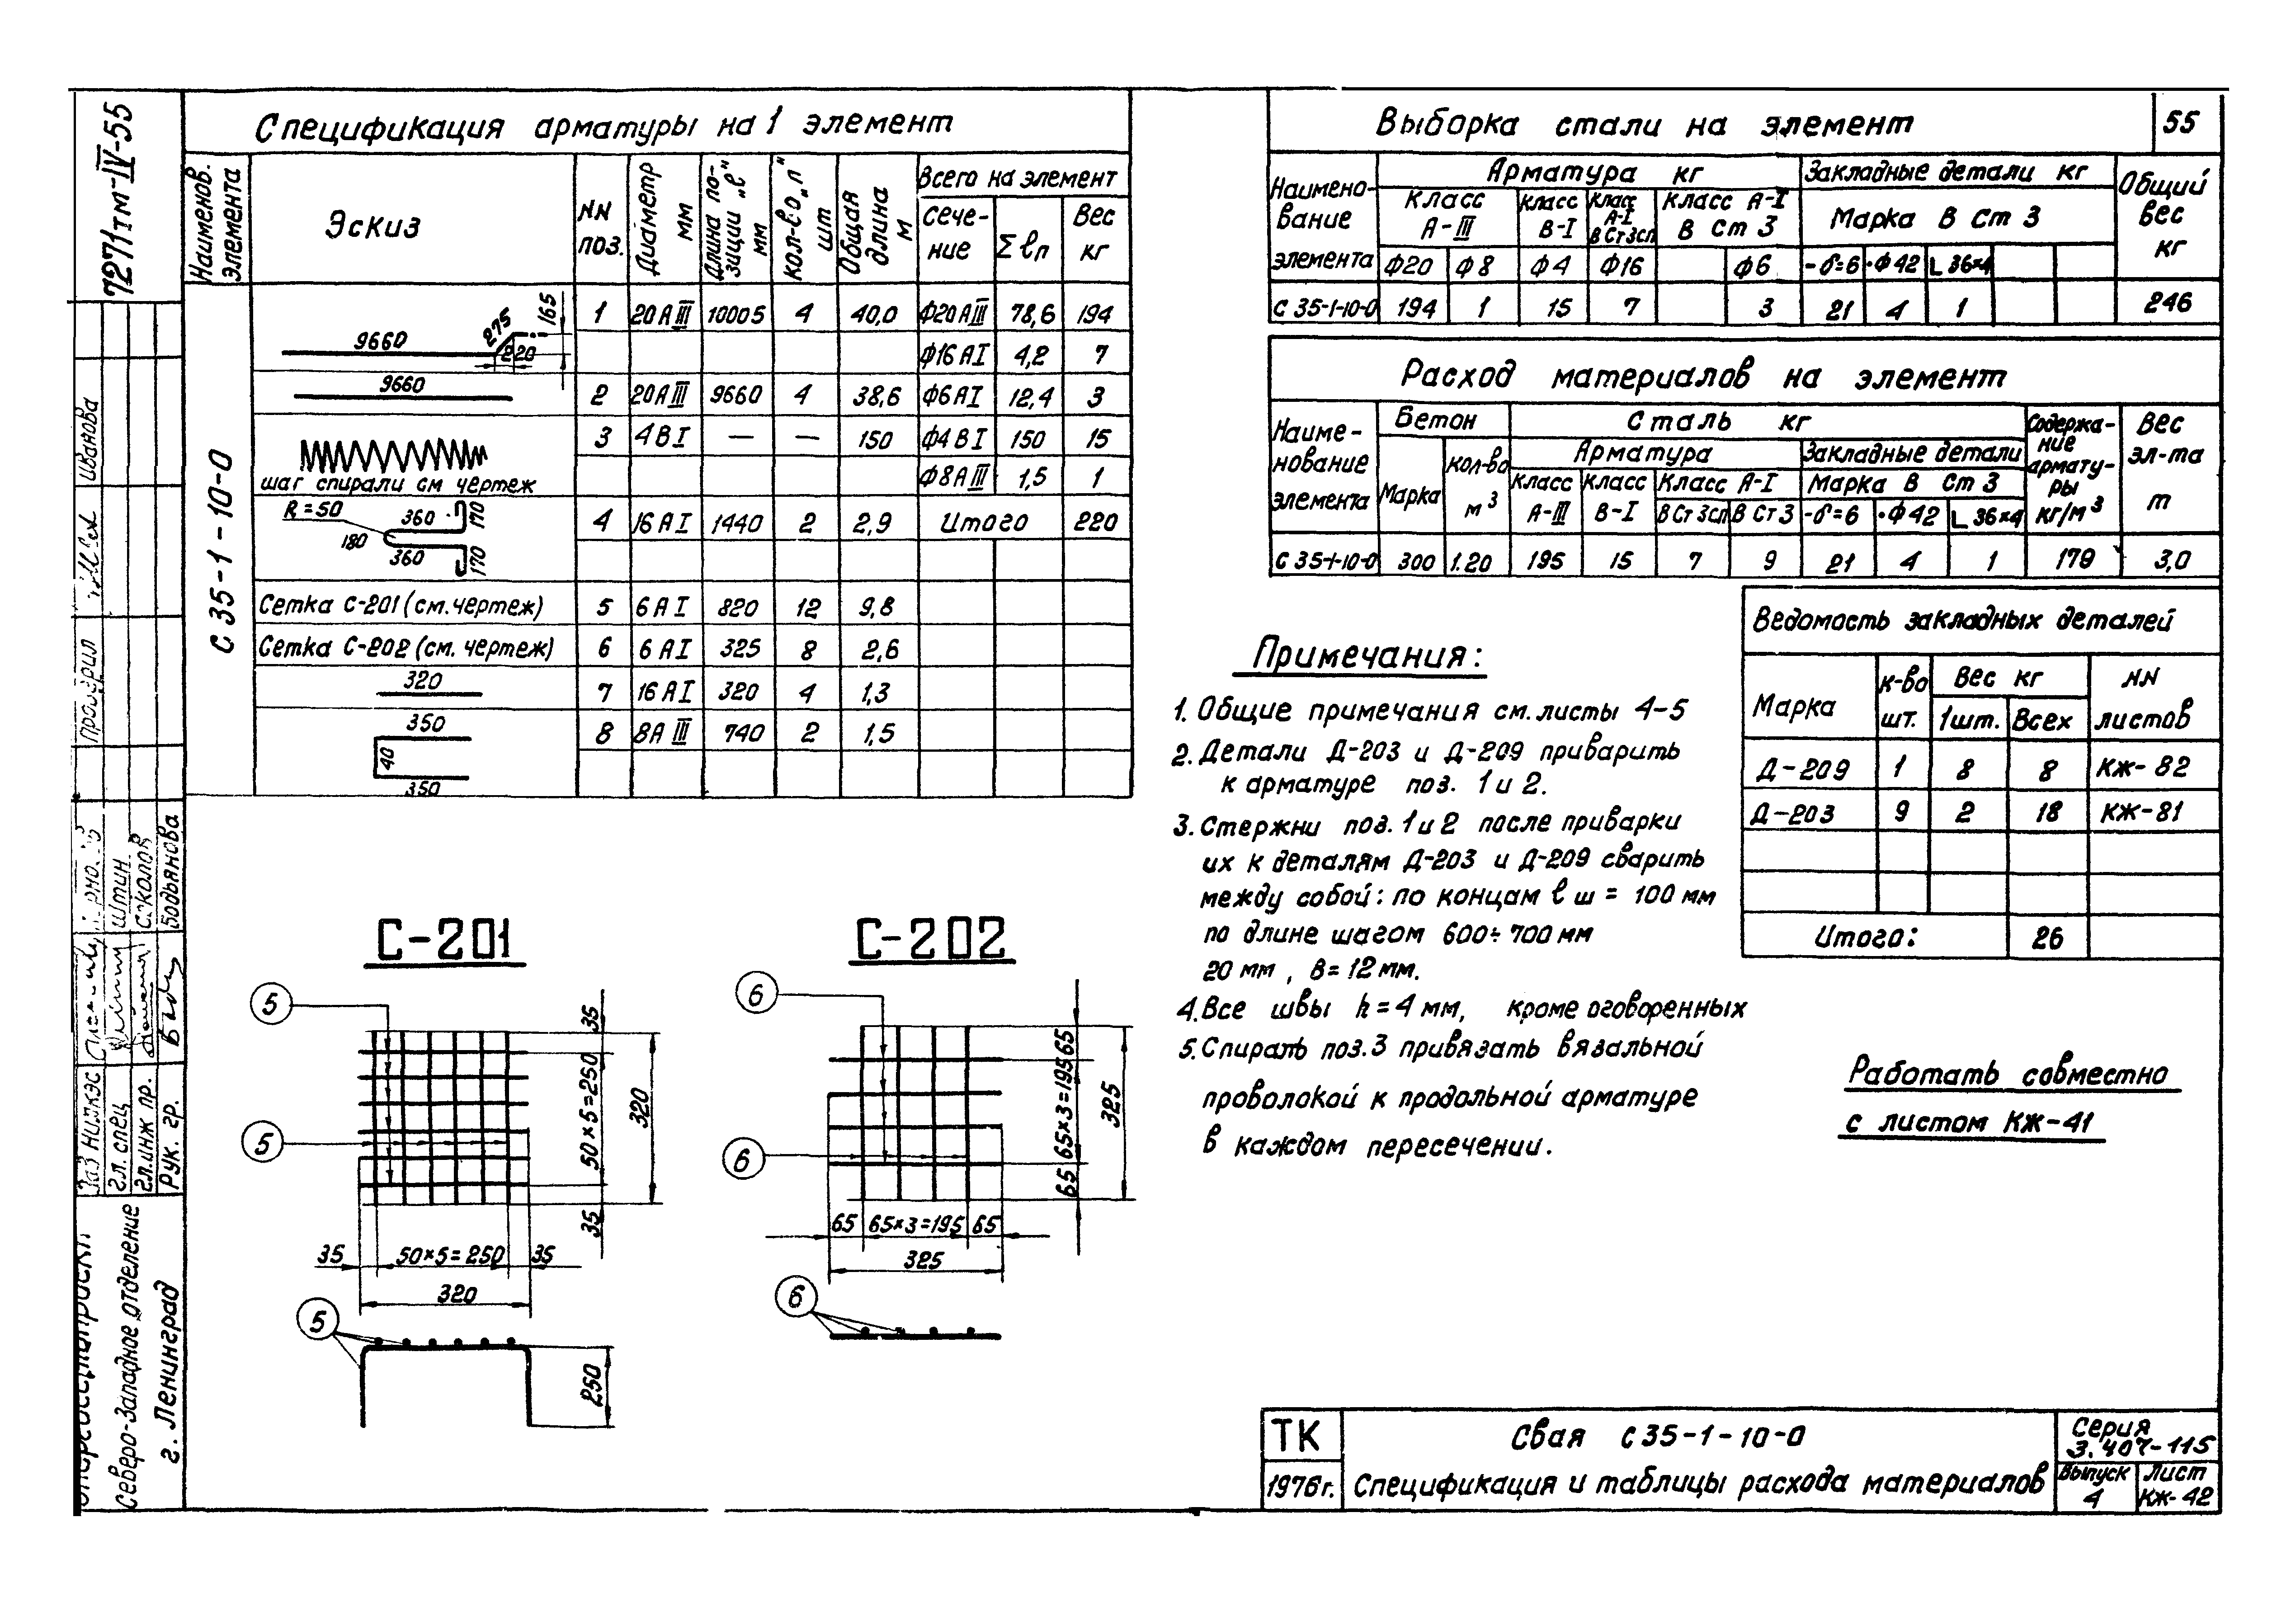 7271тм-IV-55
Спецификация арматуры на 1 элемент
Наименов. элемента
Эскиз
NN поз.
Диаметр мм
Длина позиции „ℓ" мм
Кол-во „п" шт
Общая длина м
Всего на элемент
Сечение
Σ ℓп
Вес кг
С 35-1-10-0
9660 275 220 165
1 20АIII 10005 4 40,0 Ф20АIII 78,6 194
Ф16АI 4,2 7
9660
2 20АIII 9660 4 38,6 Ф6АI 12,4 3
3 4ВI — — 150 Ф4ВI 150 15
шаг спирали см чертеж
Ф8АIII 1,5 1
R=50 360 170
180 360 170
4 16АI 1440 2 2,9 Итого 220
Сетка С-201 (см. чертеж) 5 6АI 820 12 9,8
Сетка С-202 (см. чертеж) 6 6АI 325 8 2,6
320
7 16АI 320 4 1,3
350
40
350
8 8АIII 740 2 1,5
Выборка стали на элемент
55
Наименование элемента
Арматура кг
Закладные детали кг
Общий вес кг
Класс А-III
Класс В-I
Класс А-I В Ст 3сп
Класс А-I В Ст 3
Марка В Ст 3
Ф20 Ф8 Ф4 Ф16 Ф6 -δ=6 •Ф42 L 36×4
С 35-1-10-0 194 1 15 7 3 21 4 1 246
Расход материалов на элемент
Наименование элемента
Бетон
Сталь кг
Содержание арматуры кг/м³
Вес эл-та т
Марка
Кол-во м³
Арматура
Закладные детали
Класс А-III
Класс В-I
Класс А-I
Марка В Ст 3
В Ст 3сп В Ст 3 -δ=6 •Ф42 L 36×4
С 35-1-10-0 300 1.20 195 15 7 9 21 4 1 179 3,0
Ведомость закладных деталей
Марка
К-во шт.
Вес кг
1шт. Всех
NN листов
Д-209 1 8 8 КЖ-82
Д-203 9 2 18 КЖ-81
Итого: 26
Примечания:
1. Общие примечания см. листы 4-5
2. Детали Д-203 и Д-209 приварить
к арматуре поз. 1 и 2.
3. Стержни поз. 1 и 2 после приварки
их к деталям Д-203 и Д-209 сварить
между собой: по концам ℓ ш = 100 мм
по длине шагом 600÷700 мм
20 мм, в=12 мм.
4. Все швы h=4 мм, кроме оговоренных
5. Спираль поз. 3 привязать вязальной
проволокой к продольной арматуре
в каждом пересечении.
Работать совместно
с листом КЖ-41
С-201
5
5
35
50×5=250
35
320
35 50×5=250 35
320
5
250
С-202
6
6
65
65×3=195
65
325
65 65×3=195 65
325
6
Иванова
Проверил
Штин.
Соколов
Бодьянова
Гл. спец
Гл. инж пр.
Рук. гр.
Северо-Западное отделение
г. Ленинград
ТК
1976г.
Свая С 35-1-10-0
Спецификация и таблицы расхода материалов
Серия
3.407-115
Выпуск
4
Лист
КЖ-42